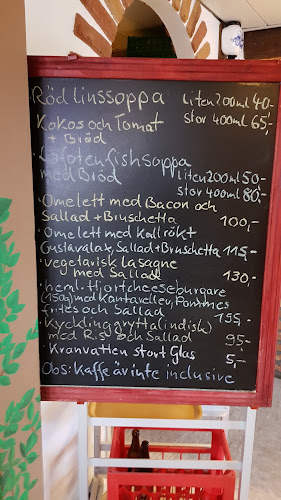 Röd linssoppa liten 200ml 40-
Kokos och Tomat stor 400ml 65,-
+ Bröd
Lofotenfishsoppa
med Bröd liten 200ml 50-
stor 400ml 80,-
· Omelett med Bacon och
Sallad + Bruschetta 100,-
· Omelett med kallrökt
Gustavalax, Sallad + Bruschetta 115,-
· vegetarisk lasagne
med Sallad 130,-
· heml. Hjortcheeseburgare
(150g) med Kantareller, Pommes
frites och Sallad 155,-
· kycklinggrytta (indisk)
med Ris och Sallad 95,-
· Kranvatten stort Glas 5,-
Obs: Kaffe är inte inclusive